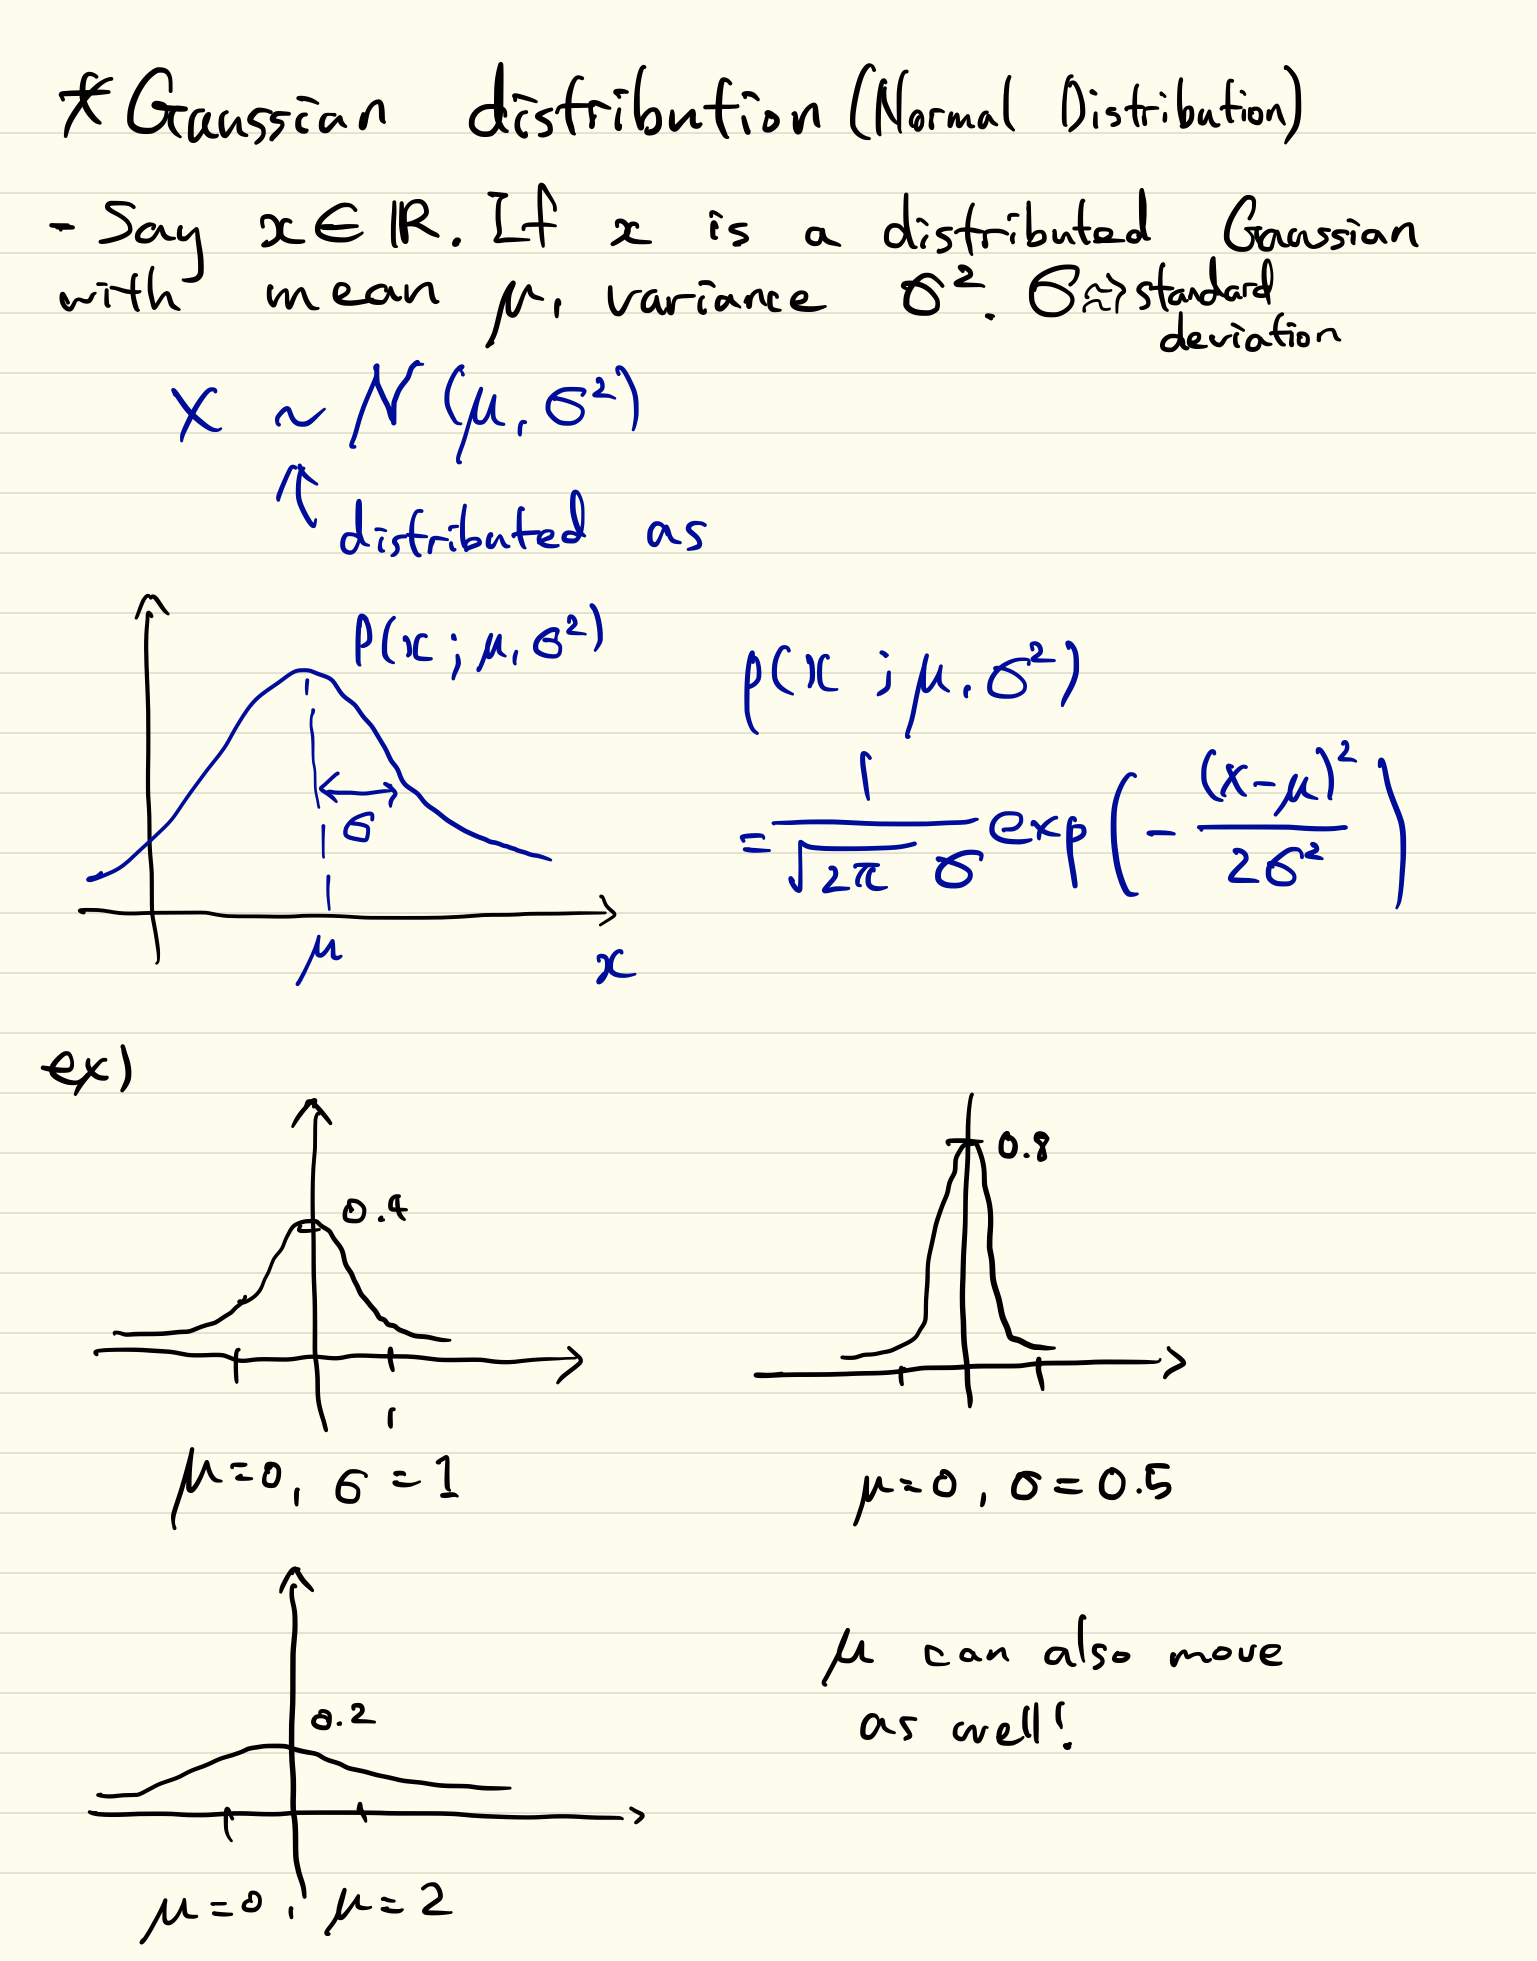 * Gaussian distribution (Normal Distribution)
- Say x ∈ ℝ. If x is a distributed Gaussian
with mean μ, variance σ². σ ≈> standard
deviation
X ~ N(μ, σ²)
↑ distributed as
P(x ; μ, σ²)
σ
μ
x
p(x ; μ, σ²)
= 1/(√2π σ) exp(- (x-μ)²/2σ²)
ex)
0.4
1
μ=0, σ=1
0.8
μ=0, σ=0.5
0.2
μ=0, μ=2
μ can also move
as well!